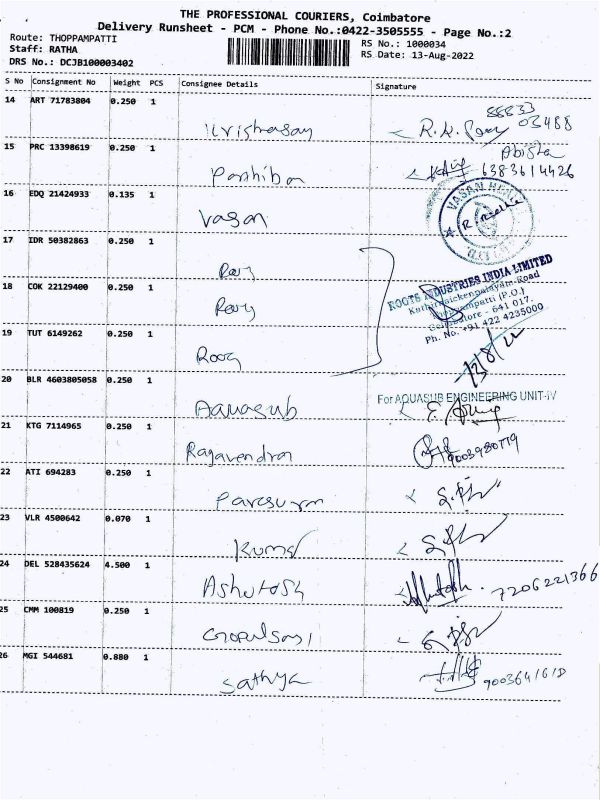 THE PROFESSIONAL COURIERS, Coimbatore
Delivery Runsheet - PCM - Phone No.:0422-3505555 - Page No.:2
Route: THOPPAMPATTI
Staff: RATHA
DRS No.: DCJB100003402
RS No.: 1000034
RS Date: 13-Aug-2022
S No Consignment No Weight PCS Consignee Details Signature
14 ART 71783804 0.250 1
03488
15 PRC 13398619 0.250 1 Parthiban
6383614426
16 EDQ 21424933 0.135 1 Vasan
17 IDR 50382863 0.250 1
18 COK 22129400 0.250 1
ROOTS INDUSTRIES INDIA LIMITED
Coimbatore - 641 017.
Ph. No. +91 422 4235000
19 TUT 6149262 0.250 1
13/8/22
20 BLR 4603805058 0.250 1 Aquasub
For AQUASUB ENGINEERING UNIT-IV
21 KTG 7114965 0.250 1 Ragavendran
22 ATI 694283 0.250 1
23 VLR 4500642 0.070 1 Kumar
24 DEL 528435624 4.500 1 Ashutosh Ashutosh . 7206221366
25 CMM 100819 0.250 1
26 MGI 544681 0.880 1 Sathya